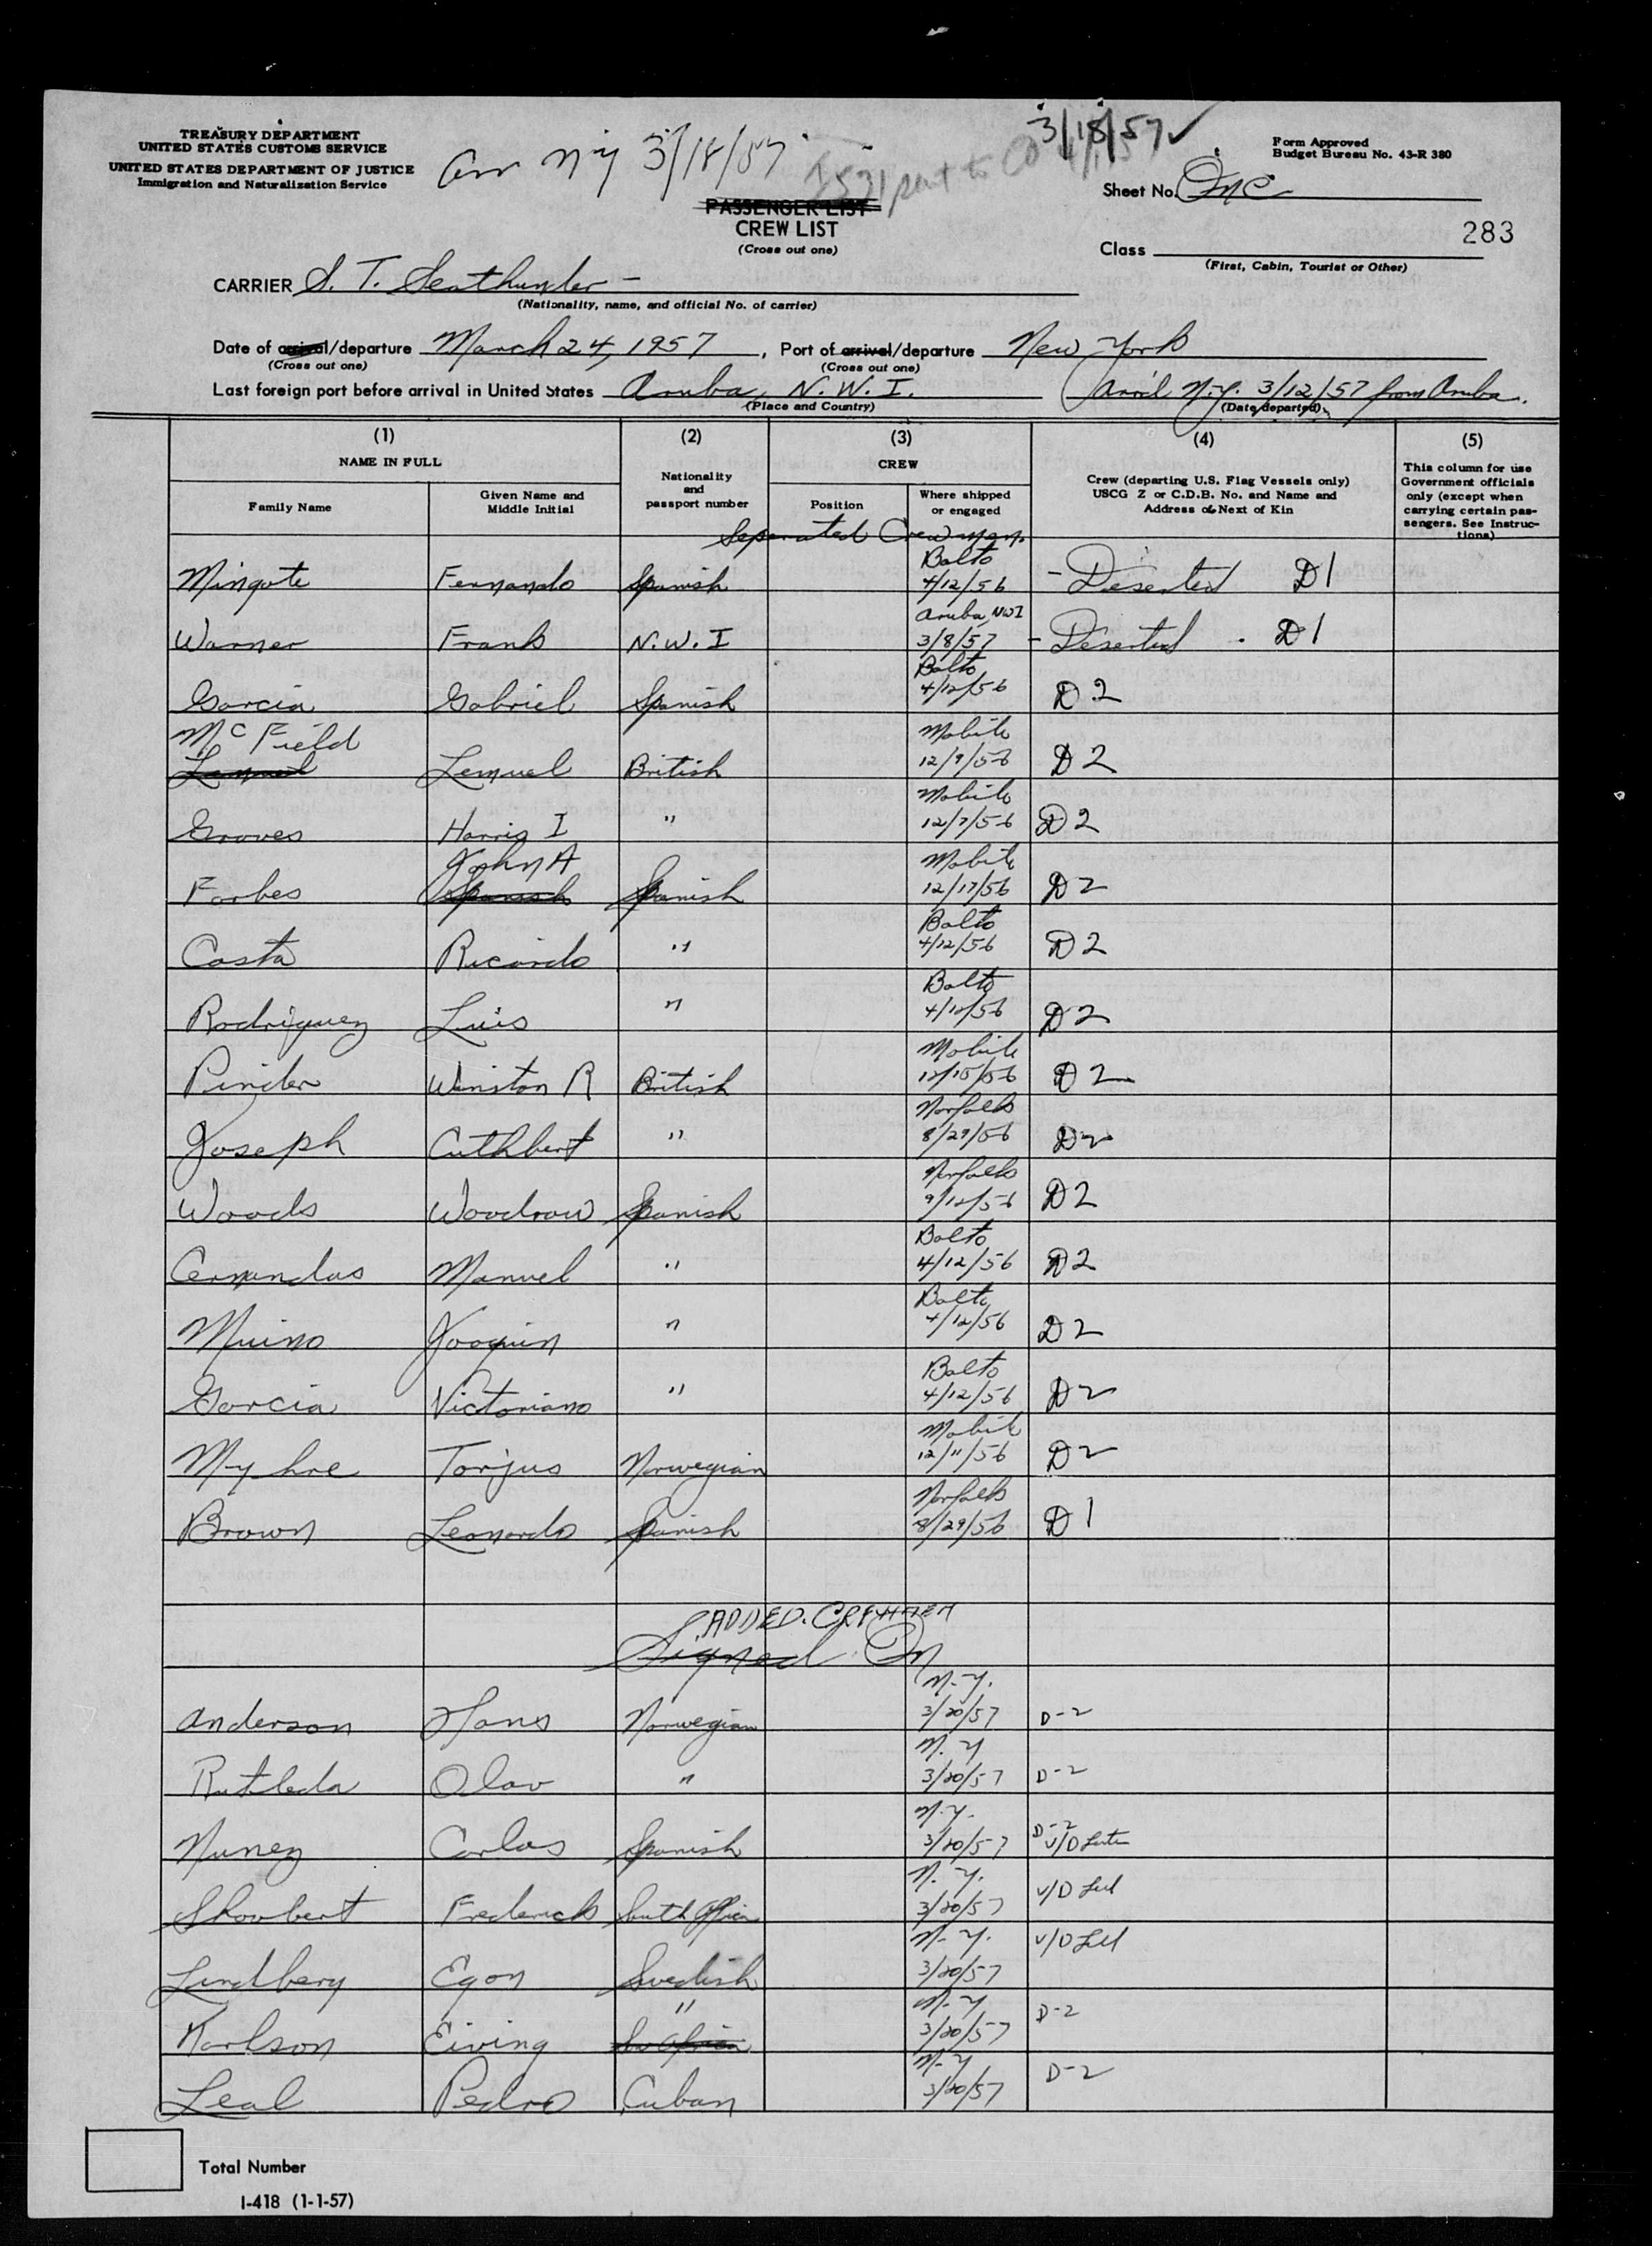 TREASURY DEPARTMENT
UNITED STATES CUSTOMS SERVICE
UNITED STATES DEPARTMENT OF JUSTICE
Immigration and Naturalization Service
arr NY 3/18/57
3/18/57 ✓
sent to
Form Approved
Budget Bureau No. 43-R 380
Sheet No. One
PASSENGER LIST
CREW LIST
(Cross out one)
283
Class
(First, Cabin, Tourist or Other)
CARRIER S. T. Seathunder -
(Nationality, name, and official No. of carrier)
Date of arrival/departure March 24, 1957, Port of arrival/departure New York
(Cross out one) (Cross out one)
Last foreign port before arrival in United States Aruba, N.W.I. N.Y. 3/12/57 from Aruba.
(Place and Country) (Date departed)
(1) (2) (3) (4) (5)
NAME IN FULL
Nationality and passport number
CREW
Crew (departing U.S. Flag Vessels only) USCG Z or C.D.B. No. and Name and Address of Next of Kin
This column for use Government officials only (except when carrying certain passengers. See Instructions)
Family Name Given Name and Middle Initial Position Where shipped or engaged
Separated Crewmen
Mingote Fernando Spanish Balto 4/12/56 - Deserted D1
Warner Frank N.W.I Aruba, NWI 3/8/57 - Deserted . D1
Garcia Gabriel Spanish Balto 4/12/56 D2
McField
Lemuel Lemuel British Mobile 12/9/56 D2
Groves Harris I " Mobile 12/7/56 D2
John A
Forbes Spanish Spanish Mobile 12/17/56 D2
Costa Ricardo " Balto 4/12/56 D2
Rodriguez Luis " Balto 4/12/56 D2
Pinder Winston R British Mobile 12/15/56 D2
Joseph Cuthbert " Norfolk 8/29/56 D2
Woods Woodrow Spanish Norfolk 9/12/56 D2
Cernandas Manuel " Balto 4/12/56 D2
Muino Joaquin " Balto 4/12/56 D2
Garcia Victoriano " Balto 4/12/56 D2
Myhre Torjus Norwegian Mobile 12/11/56 D2
Brown Leonardo Spanish Norfolk 8/29/56 D1
ADDED. CREWMEN
Signed On
Anderson Hans Norwegian N.Y. 3/20/57 D-2
Rutleda Olav " N.Y 3/20/57 D-2
Nunez Carlos Spanish N.Y. 3/20/57 D-2 V/D
Shoubert Frederick South African N.Y. 3/20/57 V/D
Lindberg Egon Swedish N.Y. 3/20/57 V/D
Karlson Eiving " N.Y 3/20/57 D-2
Leal Pedro Cuban N.Y 3/20/57 D-2
Total Number
I-418 (1-1-57)